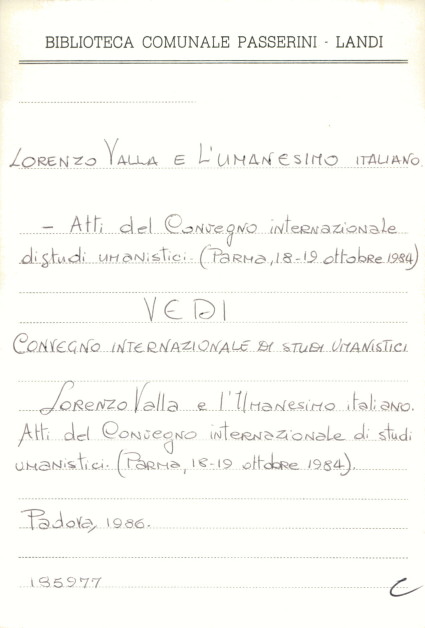 BIBLIOTECA COMUNALE PASSERINI - LANDI
LORENZO VALLA E L'UMANESIMO ITALIANO.
- Atti del Convegno internazionale
di studi umanistici. (Parma, 18-19 ottobre 1984)
VEDI
CONVEGNO INTERNAZIONALE DI STUDI UMANISTICI
Lorenzo Valla e l'Umanesimo italiano.
Atti del Convegno internazionale di studi
umanistici. (Parma, 18-19 ottobre 1984).
Padova, 1986.
185977
C